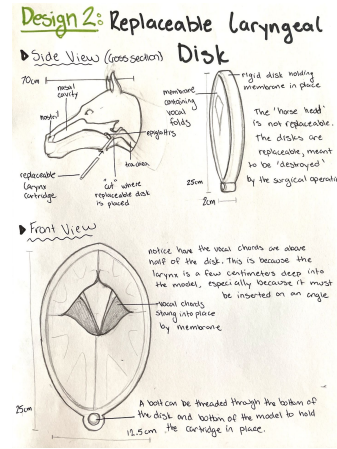 Design 2: Replaceable Laryngeal
Disk
Side View (cross section)
70cm
nasal
cavity
nostril
epiglottis
trachea
replaceable
larynx
cartridge
"cut" where
replaceable disk
is placed
rigid disk holding
membrane in place
membrane
containing
vocal
folds
The 'horse head'
is not replaceable.
The disks are
replaceable, meant
to be 'destroyed'
by the surgical operati
25cm
2cm
Front View
notice how the vocal chords are above
half of the disk. This is because the
larynx is a few centimeters deep into
the model, especially because it must
be inserted on an angle
vocal chords
strung into place
by membrane
A bolt can be threaded through the bottom of
the disk and bottom of the model to hold
the cartridge in place.
25cm
12.5cm